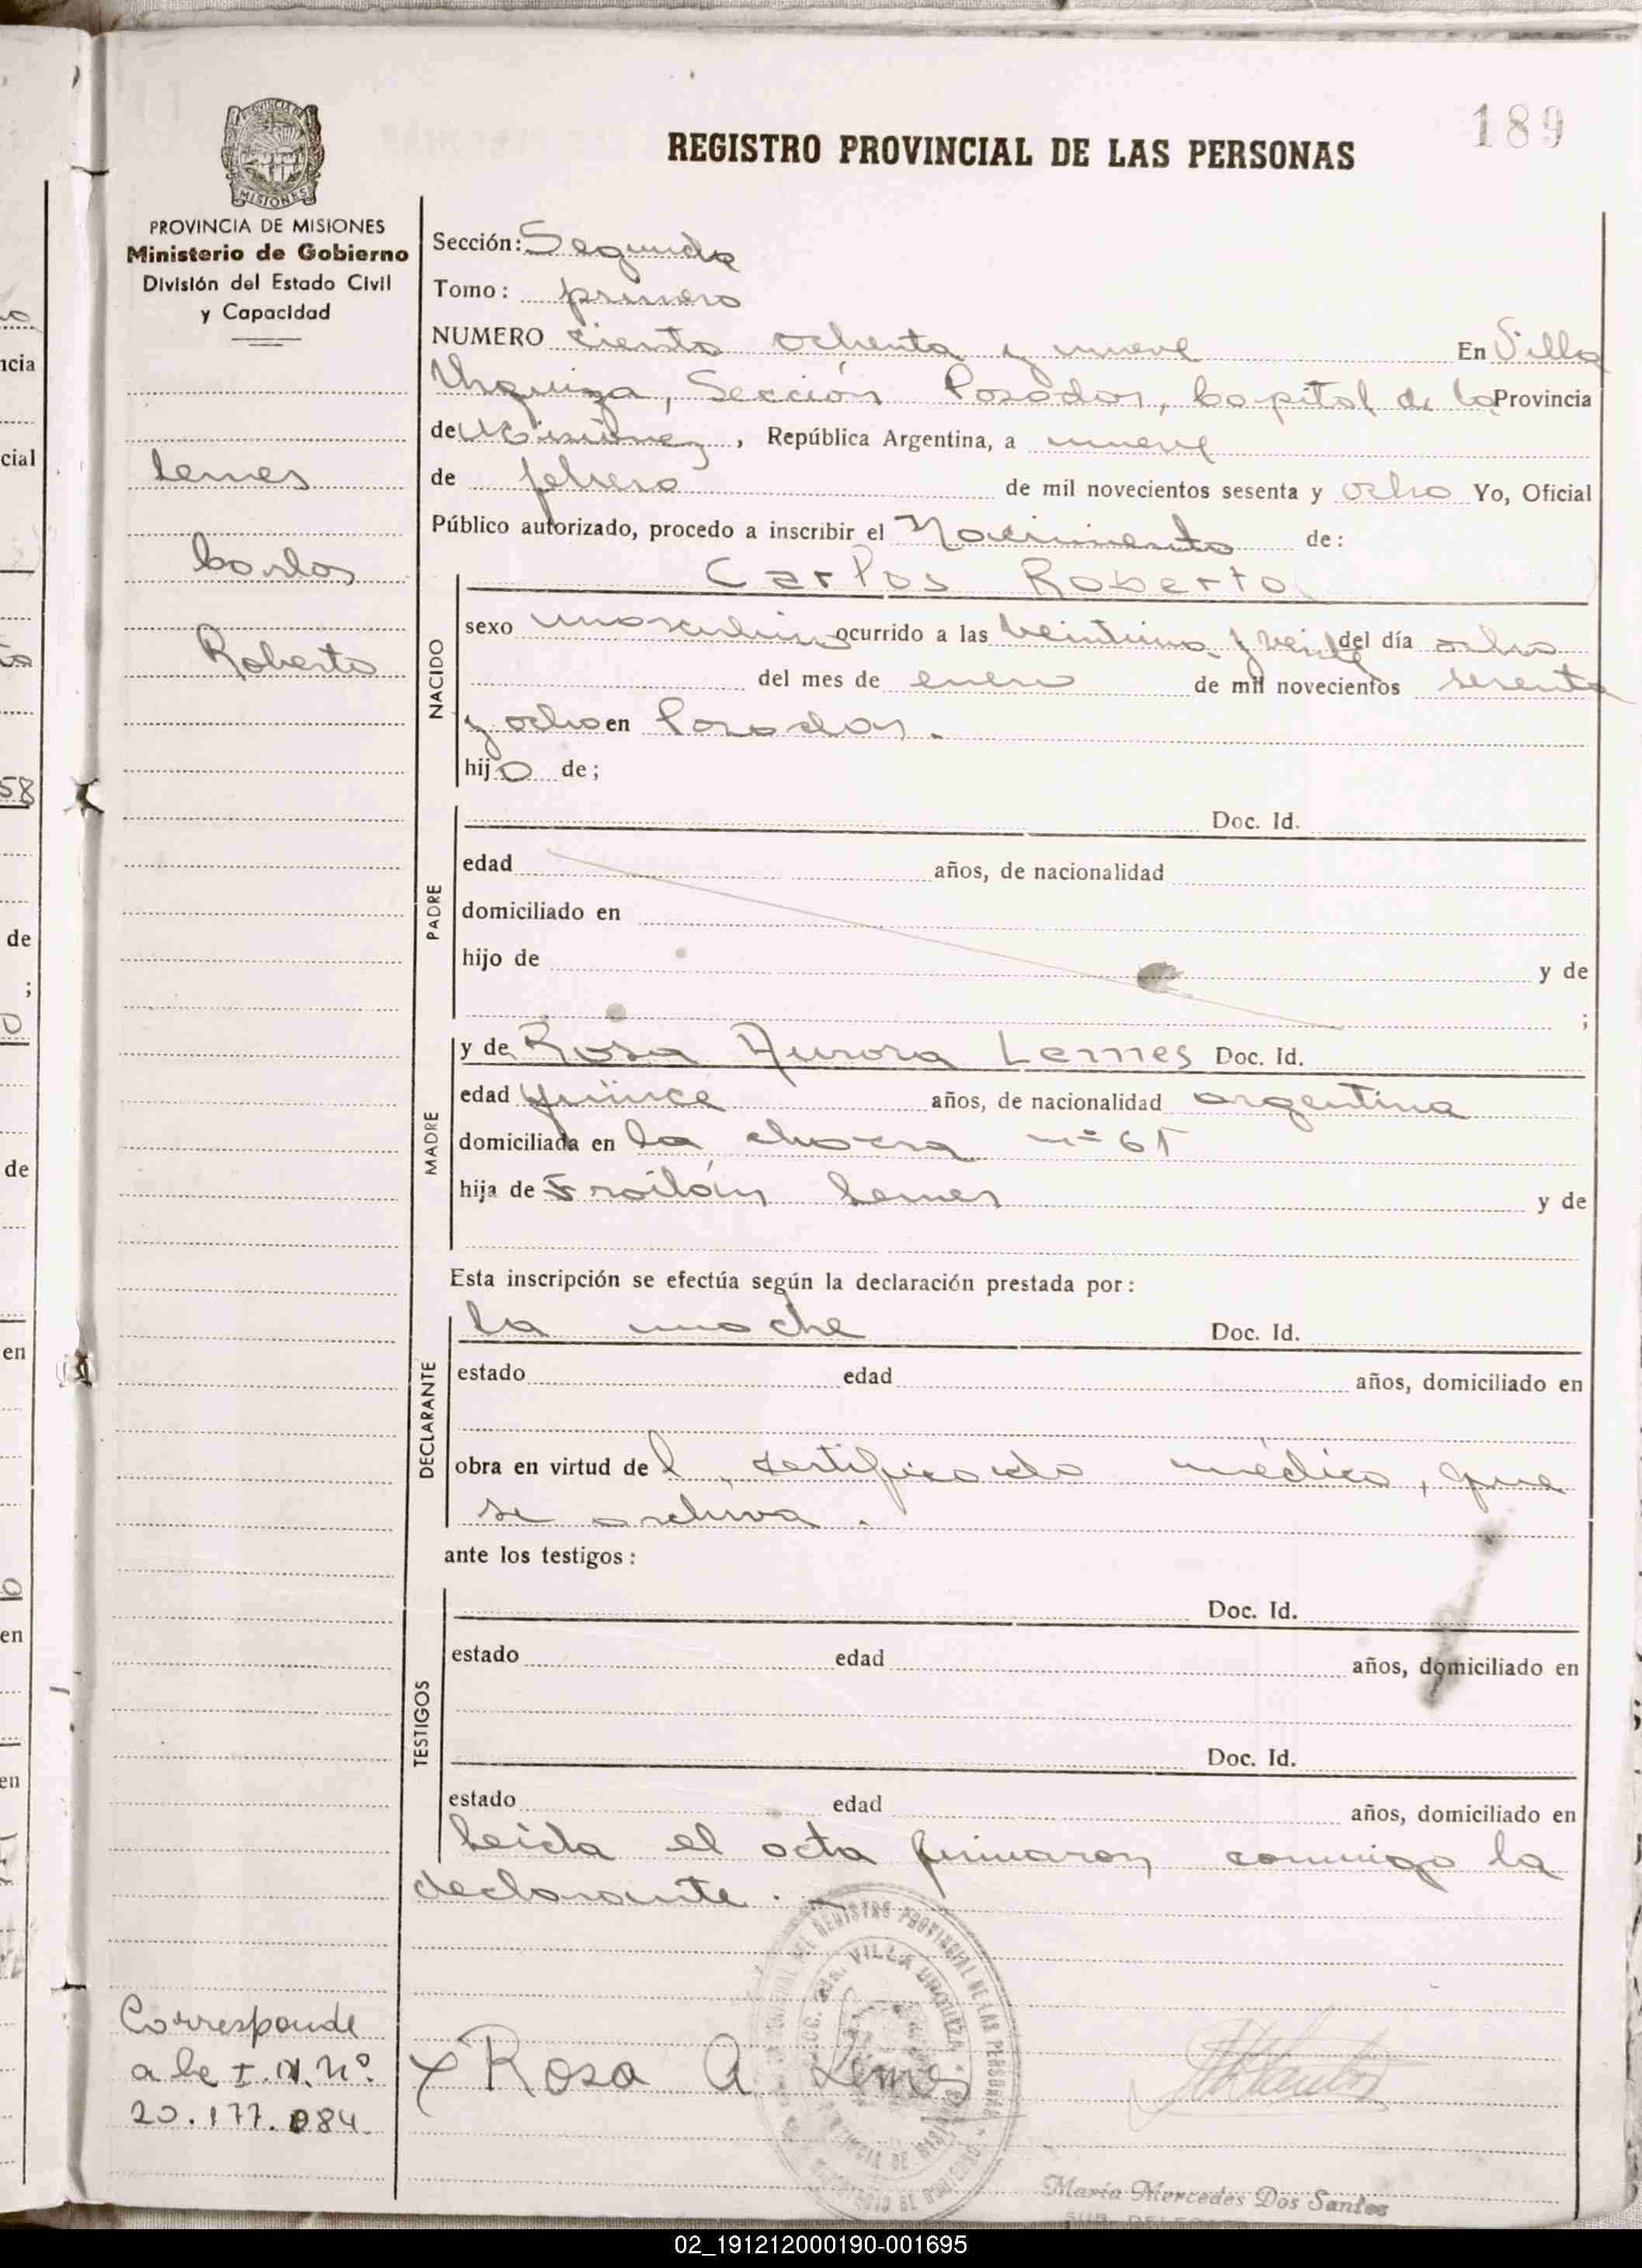 189
REGISTRO PROVINCIAL DE LAS PERSONAS
PROVINCIA DE MISIONES
Ministerio de Gobierno
División del Estado Civil
y Capacidad
Lemes
Carlos
Roberto
Sección: Segunda
Tomo: primero
NUMERO ciento ochenta y nueve En Villa
Urquiza, Sección Posadas, Capital de la Provincia
de Misiones, República Argentina, a nueve
de febrero de mil novecientos sesenta y ocho Yo, Oficial
Público autorizado, procedo a inscribir el Nacimiento de:
Carlos Roberto
NACIDO
sexo masculino ocurrido a las veintiuna y veinte del día ocho
del mes de enero de mil novecientos sesenta
y ocho en Posadas.
hijo de;
PADRE
Doc. Id.
edad años, de nacionalidad
domiciliado en
hijo de y de
;
MADRE
y de Rosa Aurora Lemes Doc. Id.
edad quince años, de nacionalidad argentina
domiciliada en la chacra nº 61
hija de Froilán Lemes y de
Esta inscripción se efectúa según la declaración prestada por:
DECLARANTE
la madre Doc. Id.
estado edad años, domiciliado en
obra en virtud del certificado médico, que
se archiva.
ante los testigos:
TESTIGOS
Doc. Id.
estado edad años, domiciliado en
Doc. Id.
estado edad años, domiciliado en
Leida el acta firmaron conmigo la
declarante.
Corresponde
a la I.N. Nº
20.177.084
x Rosa A Lemes
REGISTRO PROVINCIAL DE LAS PERSONAS
VILLA URQUIZA
María Mercedes Dos Santos
02_191212000190-001695